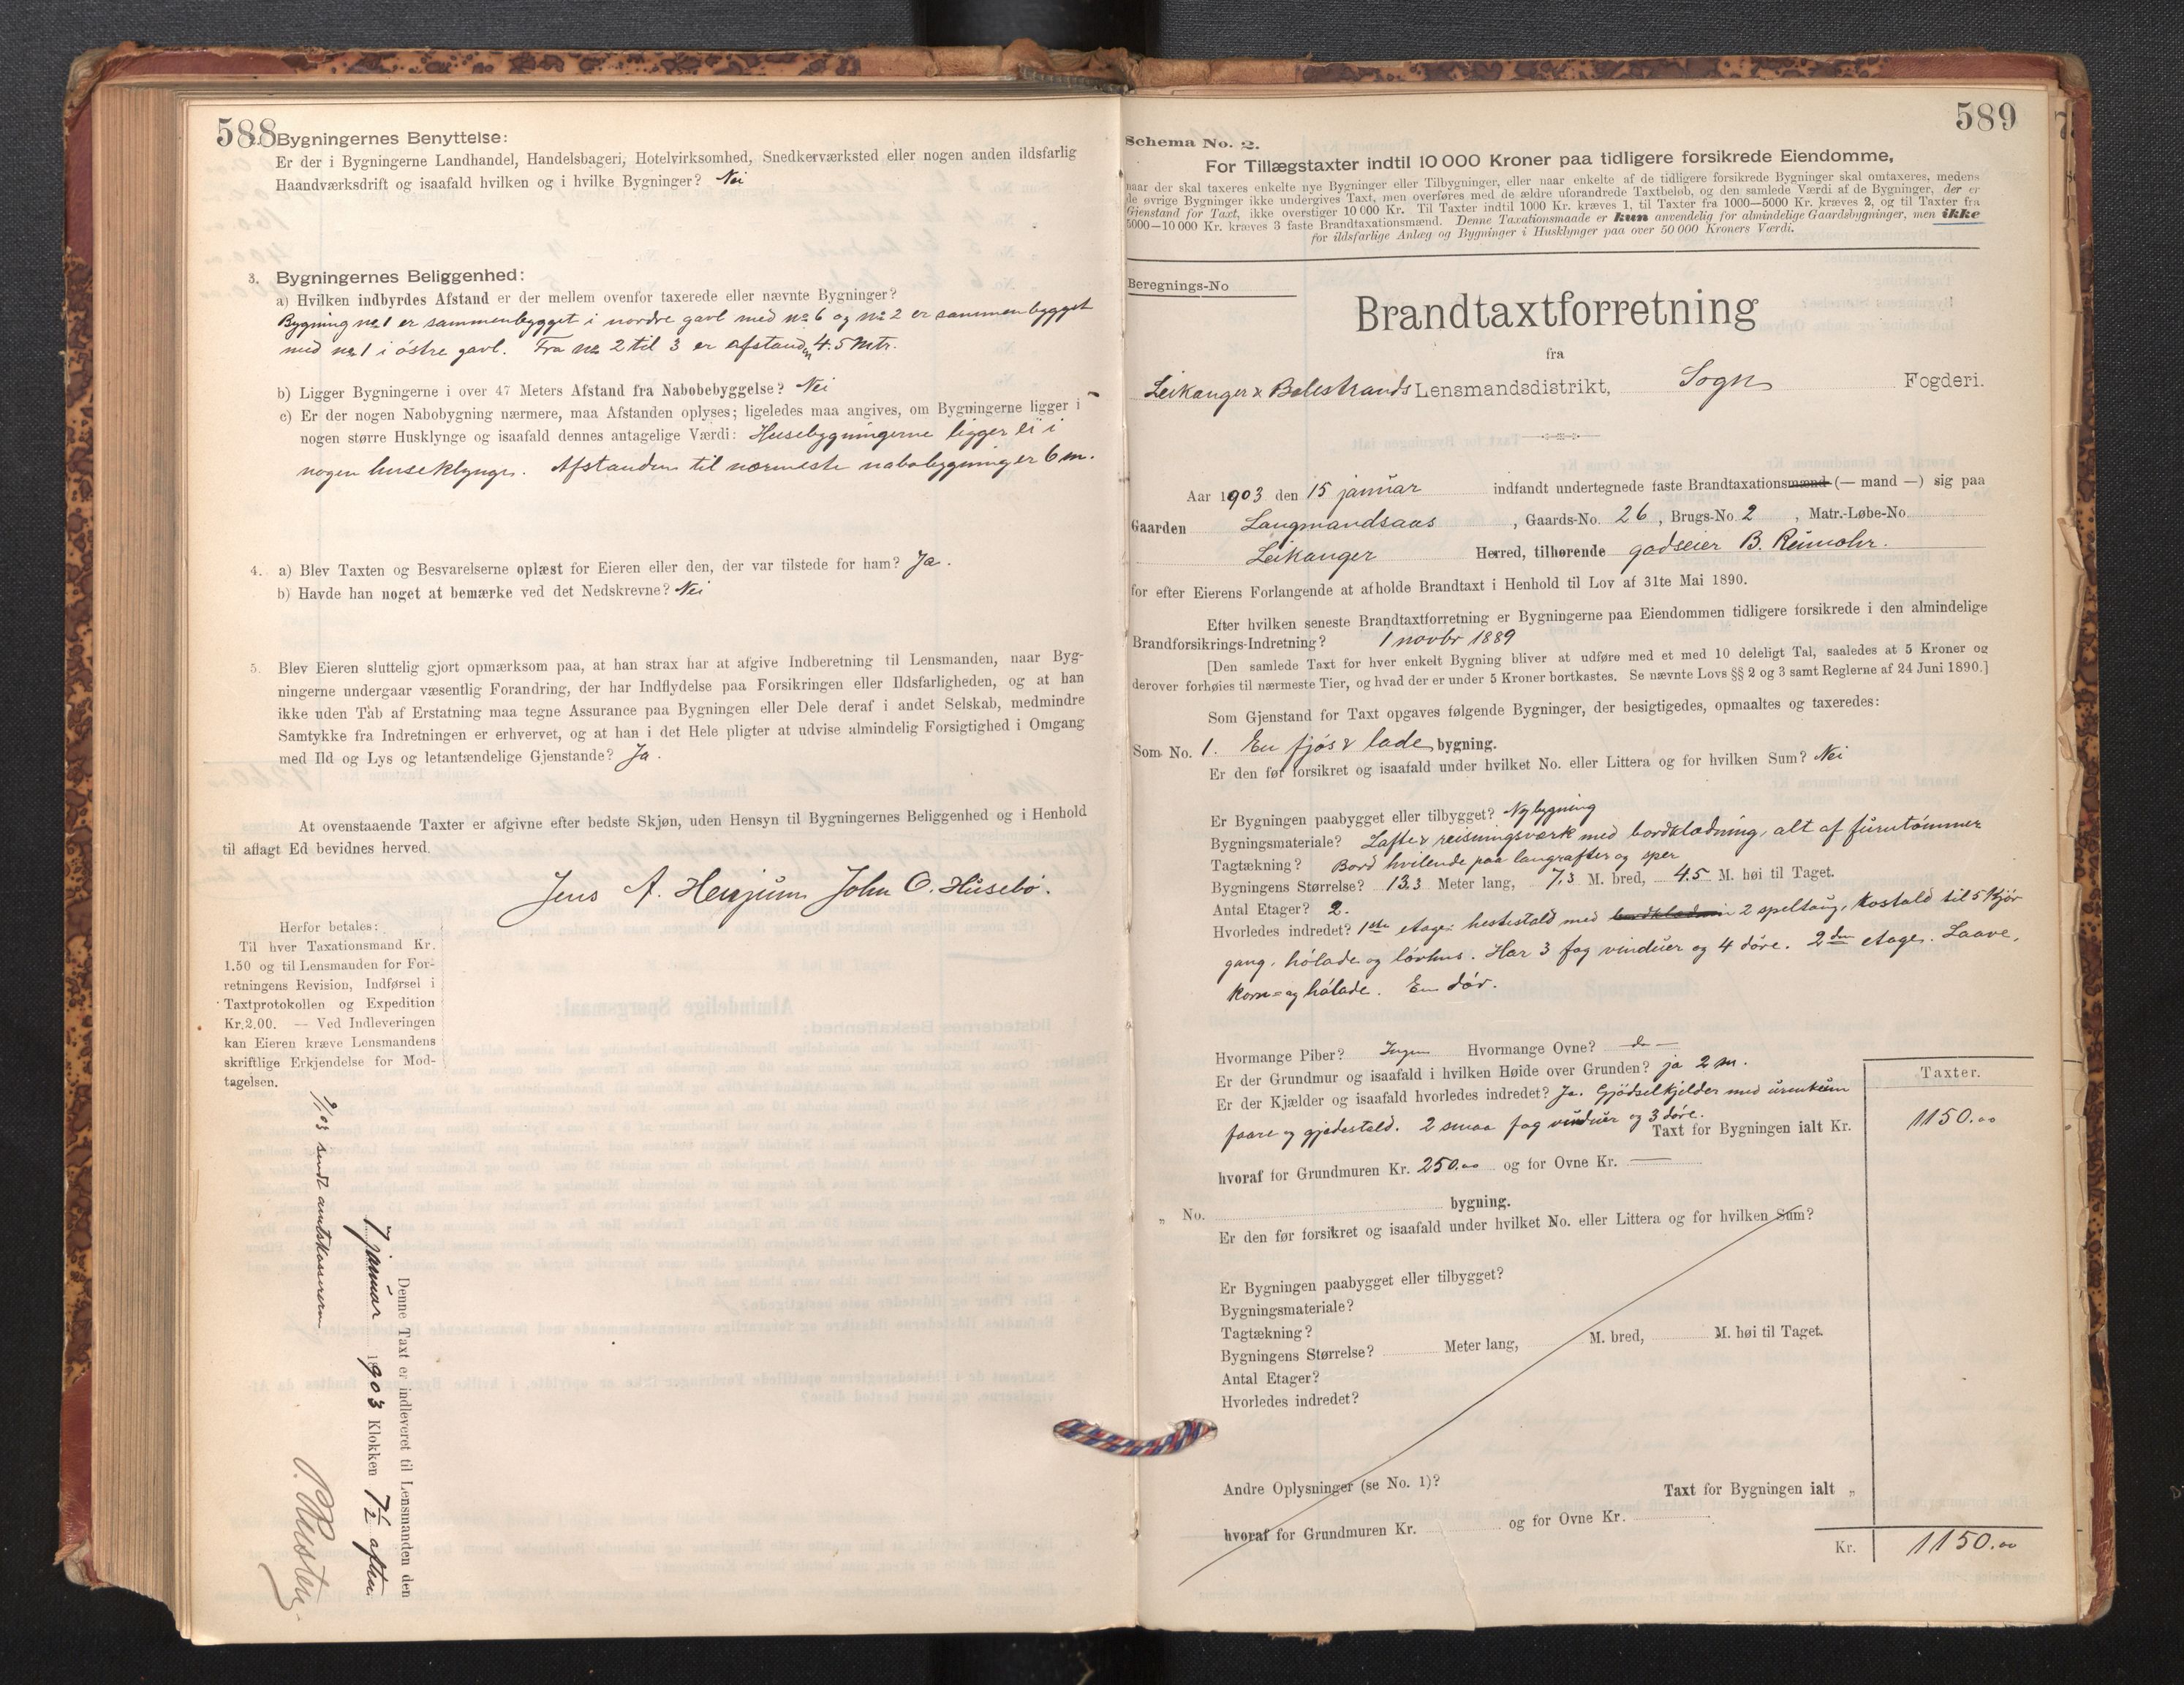 588
2. Bygningernes Benyttelse:
Er der i Bygningerne Landhandel, Handelsbageri, Hotelvirksomhed, Snedkerværksted eller nogen anden ildsfarlig
Haandværksdrift og isaafald hvilken og i hvilke Bygninger? Nei
3. Bygningernes Beliggenhed:
a) Hvilken indbyrdes Afstand er der mellem ovenfor taxerede eller nævnte Bygninger?
Bygning no 1 er sammenbygget i nordre gavl med no 6 og no 2 er sammenbygget
med no 1 i östre gavl. Fra no 2 til 3 er afstanden 4.5 mtr.
b) Ligger Bygningerne i over 47 Meters Afstand fra Nabobebyggelse? Nei
c) Er der nogen Nabobygning nærmere, maa Afstanden oplyses; ligeledes maa angives, om Bygningerne ligger i
nogen større Husklynge og isaafald dennes antagelige Værdi: Husebygningerne ligger ei i
nogen huseklynge. Afstanden til nærmeste nabobygning er 6 m.
4. a) Blev Taxten og Besvarelserne oplæst for Eieren eller den, der var tilstede for ham? Ja.
b) Havde han noget at bemærke ved det Nedskrevne? Nei
5. Blev Eieren sluttelig gjort opmærksom paa, at han strax har at afgive Indberetning til Lensmanden, naar Byg-
ningerne undergaar væsentlig Forandring, der har Indflydelse paa Forsikringen eller Ildsfarligheden, og at han
ikke uden Tab af Erstatning maa tegne Assurance paa Bygningen eller Dele deraf i andet Selskab, medmindre
Samtykke fra Indretningen er erhvervet, og at han i det Hele pligter at udvise almindelig Forsigtighed i Omgang
med Ild og Lys og letantændelige Gjenstande? Ja.
At ovenstaaende Taxter er afgivne efter bedste Skjøn, uden Hensyn til Bygningernes Beliggenhed og i Henhold
til aflagt Ed bevidnes herved.
Jens A. Henjum John O. Husebö.
Herfor betales:
Til hver Taxationsmand Kr.
1.50 og til Lensmanden for For-
retningens Revision, Indførsel i
Taxtprotokollen og Expedition
Kr. 2.00. — Ved Indleveringen
kan Eieren kræve Lensmandens
skriftlige Erkjendelse for Mod-
tagelsen.
Denne Taxt er indleveret til Lensmanden den
7 januar 1903 Klokken 7½ aften
9/1 03 sendt amtskassereren
589
Schema No. 2.
For Tillægstaxter indtil 10 000 Kroner paa tidligere forsikrede Eiendomme,
naar der skal taxeres enkelte nye Bygninger eller Tilbygninger, eller naar enkelte af de tidligere forsikrede Bygninger skal omtaxeres, medens
de øvrige Bygninger ikke undergives Taxt, men overføres med de ældre uforandrede Taxtbeløb, og den samlede Værdi af de Bygninger, der er
Gjenstand for Taxt, ikke overstiger 10 000 Kr. Til Taxter indtil 1000 Kr. kræves 1, til Taxter fra 1000—5000 Kr. kræves 2, og til Taxter fra
5000—10 000 Kr. kræves 3 faste Brandtaxationsmænd. Denne Taxationsmaade er kun anvendelig for almindelige Gaardsbygninger, men ikke
for ildsfarlige Anlæg og Bygninger i Husklynger paa over 50 000 Kroners Værdi.
Beregnings-No
Brandtaxtforretning
fra
Leikanger & Balestrands Lensmandsdistrikt, Sogn Fogderi.
Aar 1903 den 15 januar indfandt undertegnede faste Brandtaxationsmænd (— mand —) sig paa
Gaarden Langmandsaas, Gaards-No. 26, Brugs-No 2, Matr.-Løbe-No
Leikanger Herred, tilhørende godseier B. Reumohr.
for efter Eierens Forlangende at afholde Brandtaxt i Henhold til Lov af 31te Mai 1890.
Efter hvilken seneste Brandtaxtforretning er Bygningerne paa Eiendommen tidligere forsikrede i den almindelige
Brandforsikrings-Indretning? 1 novbr 1889
[Den samlede Taxt for hver enkelt Bygning bliver at udføre med et med 10 deleligt Tal, saaledes at 5 Kroner og
derover forhøies til nærmeste Tier, og hvad der er under 5 Kroner bortkastes. Se nævnte Lovs §§ 2 og 3 samt Reglerne af 24 Juni 1890.]
Som Gjenstand for Taxt opgaves følgende Bygninger, der besigtigedes, opmaaltes og taxeredes:
Som No. 1. En fjös & lade bygning.
Er den før forsikret og isaafald under hvilket No. eller Littera og for hvilken Sum? Nei
Er Bygningen paabygget eller tilbygget? Nybygning
Bygningsmateriale? Lafte & reisningsværk med bordklædning, alt af furutömmer
Tagtækning? Bord hvilende paa langrafter og sper
Bygningens Størrelse? 13.3 Meter lang, 7.3 M. bred, 4.5 M. høi til Taget.
Antal Etager? 2.
Hvorledes indredet? 1ste etage: hestestald med 2 speltaug, kostald til 5 kjör
gang, hölade og lövhus. Har 3 fag vinduer og 4 döre. 2den etage. Laave,
korn= og hölade. En dör.
Hvormange Piber? Ingen Hvormange Ovne? do
Er der Grundmur og isaafald i hvilken Høide over Grunden? ja 2 m.
Er der Kjælder og isaafald hvorledes indredet? Ja. Gjödselkjelder med
faare og gjedestald. 2 smaa fag vinduer og 3 döre.
Taxter.
Taxt for Bygningen ialt Kr. 1150.00
hvoraf for Grundmuren Kr. 250.00 og for Ovne Kr. —
„ No. bygning.
Er den før forsikret og isaafald under hvilket No. eller Littera og for hvilken Sum?
Er Bygningen paabygget eller tilbygget?
Bygningsmateriale?
Tagtækning?
Bygningens Størrelse? Meter lang, M. bred, M. høi til Taget.
Antal Etager?
Hvorledes indredet?
Andre Oplysninger (se No. 1)?
Taxt for Bygningen ialt „
hvoraf for Grundmuren Kr. og for Ovne Kr.
Kr. 1150.00